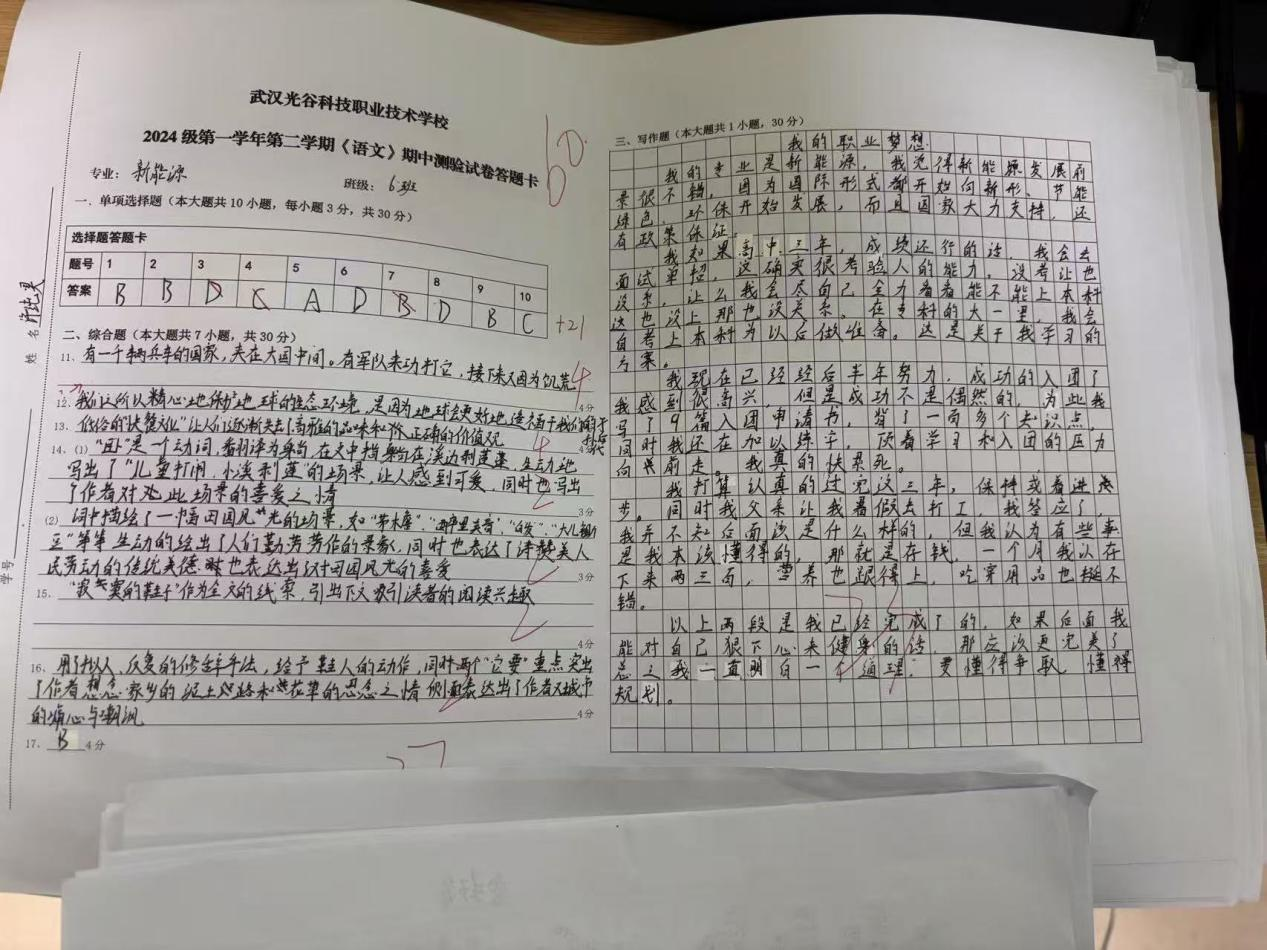 武汉光谷科技职业技术学校
2024级第一学年第二学期《语文》期中测验试卷答题卡
60
专业：新能源
班级：6班
姓名
学号
一、单项选择题（本大题共10小题，每小题3分，共30分）
选择题答题卡
题号 1 2 3 4 5 6 7 8 9 10
答案 B B D C A D B D B C
+21
二、综合题（本大题共7小题，共30分）
11、有一个辆兵车的国家，夹在大国中间。有军队来功打它，接下来又因为饥荒
4
4分
12、我们之所以精心地保护地球的生态环境，是因为地球会更好地造福于我们
13、低俗的"快餐文化"让人们逐渐失去了高雅的品味和正确的价值观
4
14、(1)"卧"是一个动词，翻译为身，在文中指躺在溪边剥莲蓬，生动地
写出了"儿童打闹，小溪剥莲"的场景，让人感到可爱，同时也写出
了作者对此场景的喜爱之情
2
3分
(2) 词中描绘了一幅田园风光的场景，如"茅木屋""醉里吴音"，"白发"，"大儿锄
豆"等等生动的绘出了人们勤劳劳作的景象，同时也表达了诗赞美人
民劳动的传统美德 也表达出汉村田园风光的喜爱
3分
15、"寂寞的鞋子"作为全文的线索，引出下文吸引读者的阅读兴趣
2
4分
16、用了拟人、反复的修辞手法，给予鞋人的动作，同时两个"它要"重点突出
了作者想念家乡的泥土路和花草的思念之情 侧面表达出了作者对城市
的痛心与嘲讽
4分
17、B 4分
27
三、写作题（本大题共1小题，30分）
我的职业梦想
我的专业是新能源，我觉得新能源发展前
景很不错，因为国际形式都开始向新形、节能
绿色、环保开始发展，而且国家大力支持，还
有政策保证。
我如果高中三年，成绩还行的话，我会去
面试单招，这确实很考验人的能力，没考让也
没多，让么我会尽自己全力看看能不能上本科
这也没上那也没关系。在专科的大一里，我会
自考上本科为以后做准备。这是关于我学习的
方案。
我现在已经经后半年努力，成功的入团了
我感到很高兴，但是成功不是偶然的，为此我
写了9篇入团申请书，背了一百多个知识点，
同时我还在加以练字，顶着学习和入团的压力
向前走。我真的快累死。
我打算认真的过完这三年，保持或者进
步。同时我父亲让我暑假去打工，我答应了，
我并不知后面该是什么样的，但我认为有些事
是我本该懂得的，那就是存钱，一个月我以存
下来两三百，营养也跟得上，吃穿用品也挺不
错。
以上两段是我已经完成了的，如果后面我
能对自己狠下心来健身的话，那应该更完美了
总之我一直明白一个道理：要懂得争取，懂得
规划。